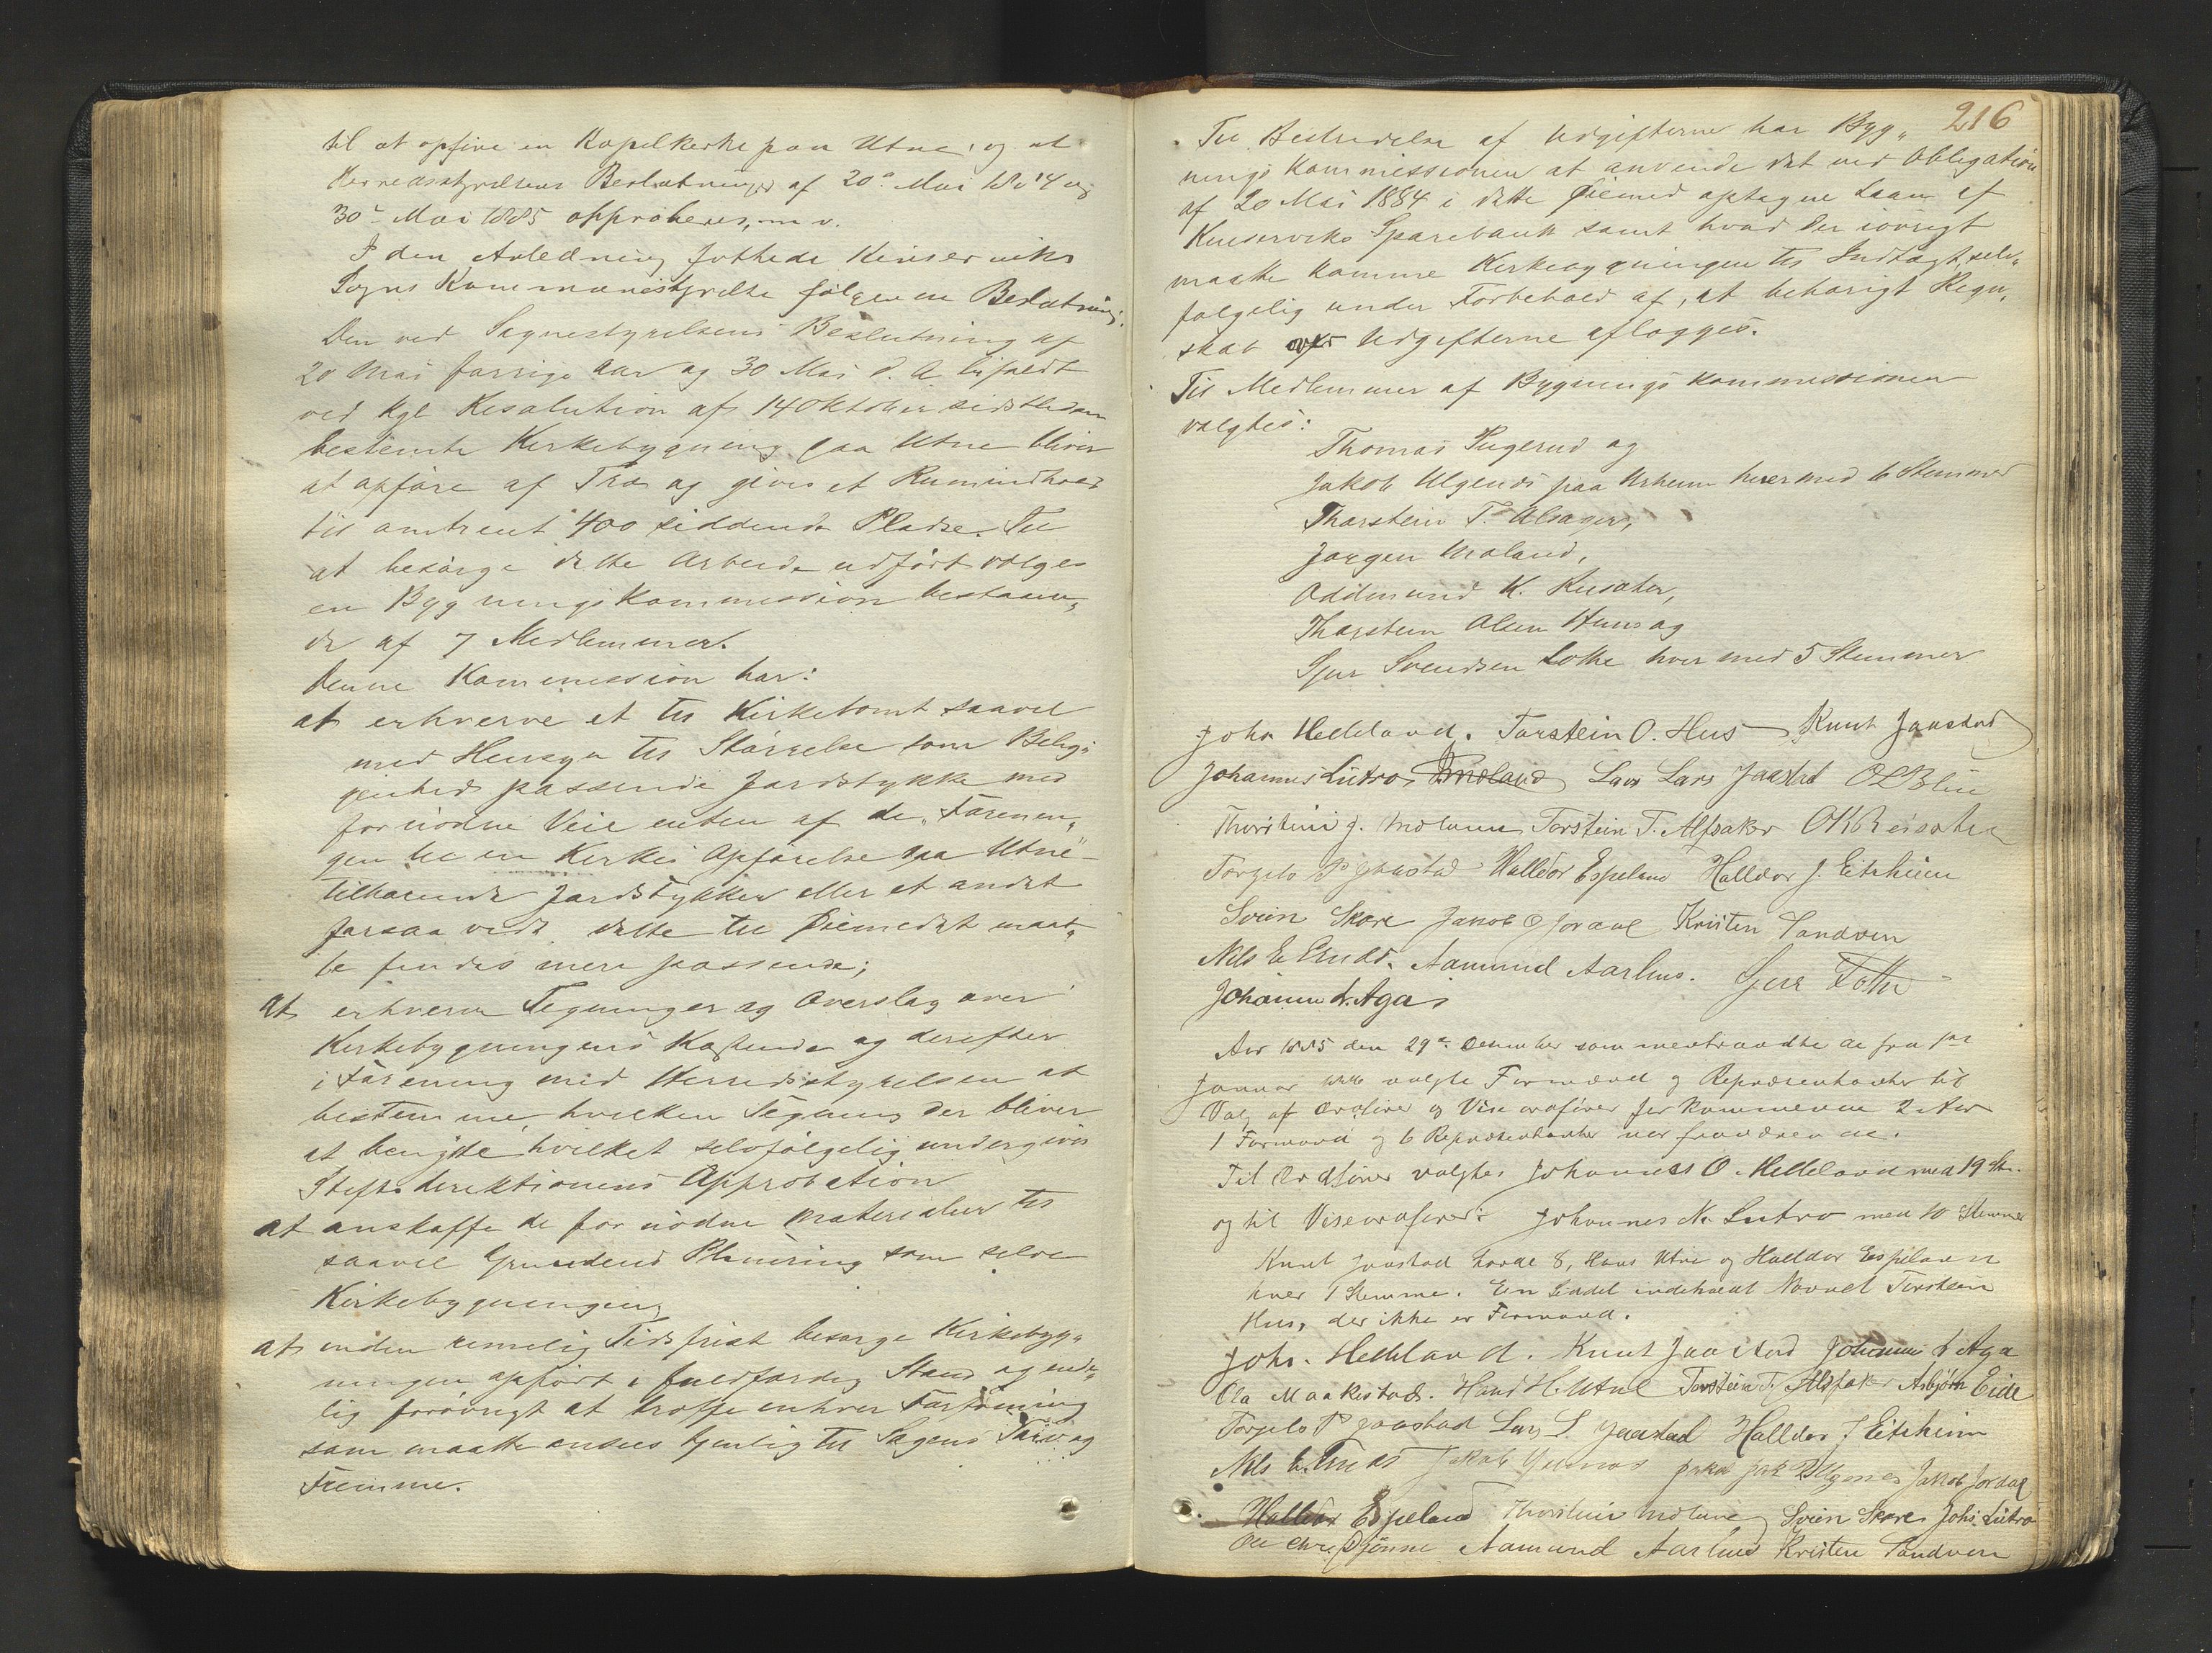 til at opføre en Kapelkirke paa Utne, og at
Herredsstyrelsens Beslutninger af 20de Mai 1884 og
30te Mai 1885 approberes, m. v.
I den Anledning fattede Kinserviks
Sogns Kommunestyrelse følgende Beslutning:
Den ved Sognestyrelsens Beslutning af
20 Mai forrige Aar og 30 Mai d. A. bifaldt
ved Kgl Resolution af 14 Oktober sidstleden
bestemte Kirkebygning paa Utne bliver
at opføre af Træ og gives et Rumindhold
til omtrent 400 siddende Pladse. Til
at besørge dette Arbeide udført vælges
en Bygningskommission bestaaen„
de af 7 Medlemmer.
Denne Kommission har:
at erhverve et til Kirketomt saavel
med Hensyn til Størrelse som Belig„
genhed passende Jordstykke med
fornødne Veie enten af de „Forenin„
gen til en Kirkes Opførelse paa Utne“
tilhørende Jordstykker eller et andet
forsaavidt dette til Øiemedet maat„
te findes mere passende;
at erhverve Tegninger og Overslag over
Kirkebygningens Kostende og derefter
i Forening med Herredsstyrelsen at
bestemme, hvilken Tegning der bliver
at benytte hvilket selvfølgelig undergives
Stiftsdirektionens Approbation
at anskaffe de fornødne Materialier til
saavel Grundens Planering som selve
Kirkebygningen,
at inden rimelig Tidsfrist besørge Kirkebyg„
ningen opført i fuldfærdig Stand og ende„
lig forøvrigt at træffe enhver Forføining
som maatte ansees tjenlig til Sagens Tarv og
Fremme.
216
Til Bestridelse af Udgifterne har Byg„
nings Kommissionen at anvende det ved Obligation
af 20 Mai 1884 i dette Øiemed optagne Laan af
Kinserviks Sparebank samt hvad der iøvrigt
maatte komme Kirkebygningen til Indtægt, selv„
følgelig under Forbehold af, at behørigt Regn„
skab over Udgifterne aflægges.
Til Medlemmer af Bygnings Kommissionen
valgtes:
Thomas Pugerud og
Jakob Ulgenæs paa Urheim hver med 6 Stemmer
Thorstein T. Alsager,
Jørgen Moland,
Oddmund K. Reisæter,
Thorstein Olsen Huus og
Sjur Svendsen Lothe hver med 5 Stemmer
Johs Helleland. Torstein O. Hus Knut Jaastad
Johannes Lutro Lars Lars Jaastad O L Blie
Thorstein J. Moland Torstein T. Alfsaker O K Reisæter
Torgils P Jaastad Halldor Espeland Halldor J. Eitrheim
Svein Skare Jakob O Jordal Kristen Sandven
Nils E Aamund Aarhus. Sjur Lothe
Johannes L. Aga
Aar 1885 den 29de Desember sammentraadte de fra 1ste
Januar 1886 valgte Formænd og Repræsentanter til
Valg af Ordfører og Viseordfører for kommende 2 Aar
1 Formand og 6 Repræsentanter var fraværende.
Til Ordfører valgtes Johannes O. Helleland med 19 St.
og til Viseordfører: Johannes N. Lutro med 10 Stemmer
Knut Jaastad havde 8, Hans Utne og Halldor Espeland
hver 1 Stemme. En Seddel indeholdt Navnet Torstein
Hus, der ikke er Formand.
Johs. Helleland. Knut Jaastad Johannes L Aga
Ola Maakestad. Hans H. Utne Torstein T. Alsaker Asbjørn Eide
Torgils P Jaastad Lars L. Jaastad Halldor J Eitrheim
Nils E. Jakob Jakob Jordal
Halldor Espeland Thorstein Moland Svein Skare Johs. Lutro
Djønne Aamund Aarhus Kristen Sandven